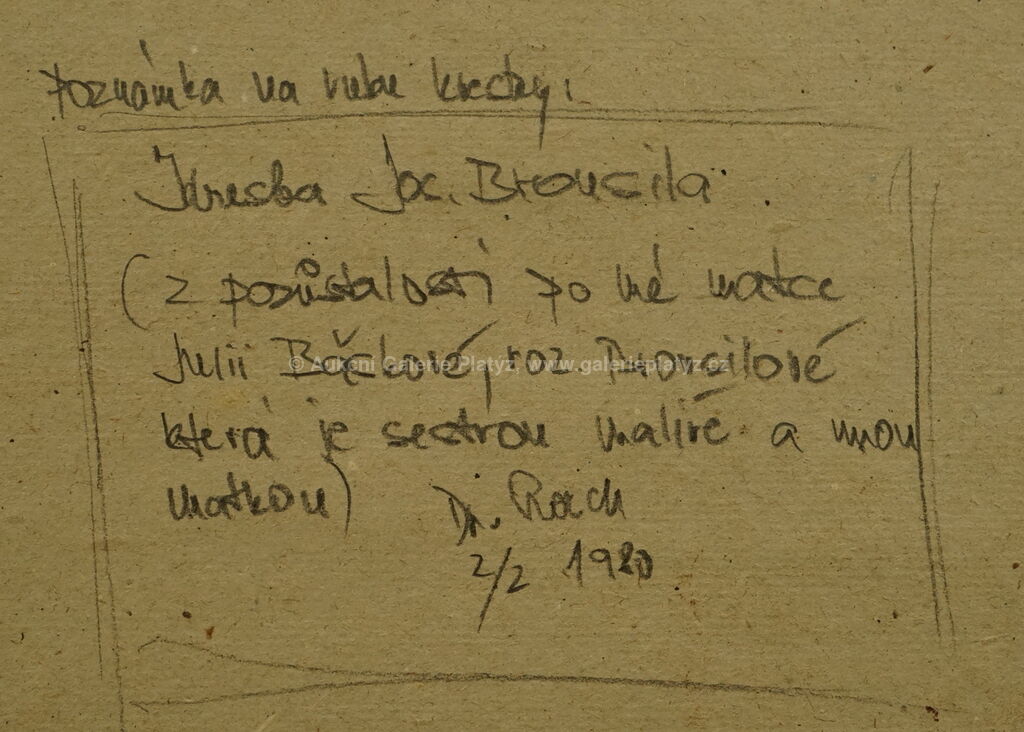 Poznámka na rubu kresby:
Kresba Jos. Brousila.
(z pozůstalosti po mé matce
Julii roz Brousilové
která je sestrou malíře a mou
matkou) Dr. Rach
2/2 1920
© Aukční Galerie Platýz, www.galerieplatyz.cz